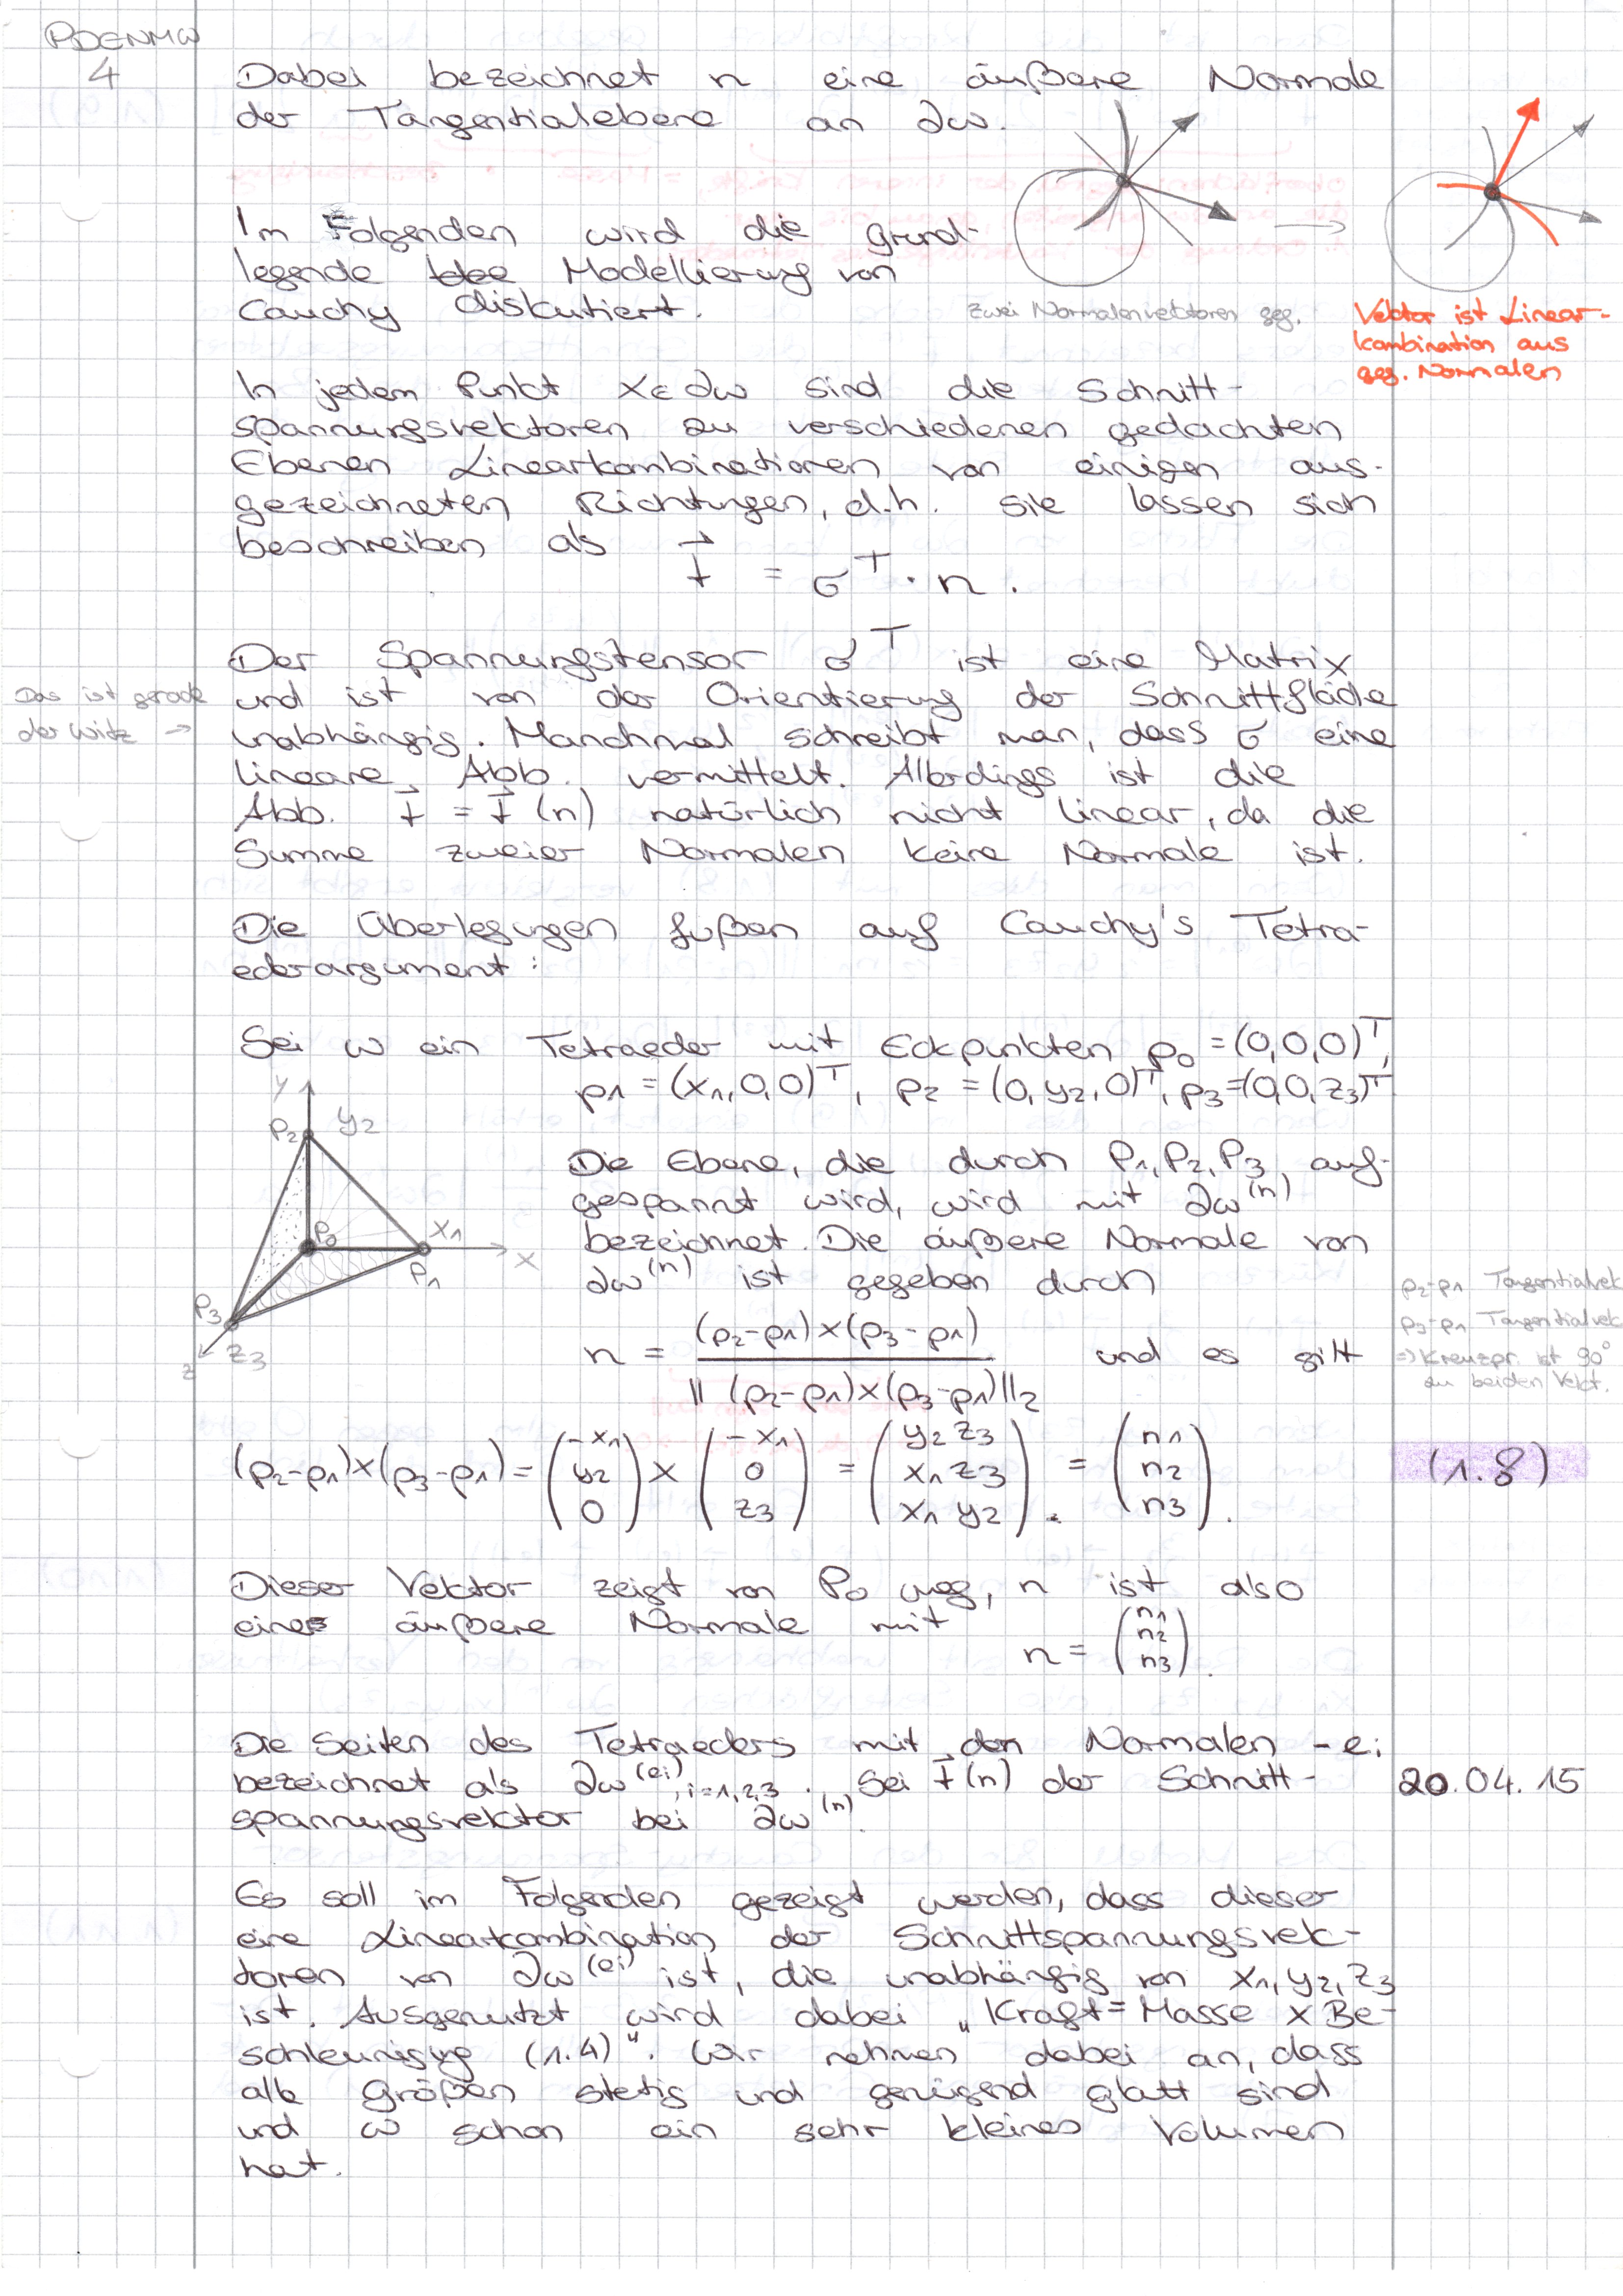 PDENMW
4
Dabei bezeichnet n eine äußere Normale
der Tangentialebene an ∂ω.
Im Folgenden wird die grund-
legende Modellierung von
Cauchy diskutiert.
zwei Normalenvektoren geg.
Vektor ist Linear-
kombination aus
geg. Normalen
In jedem Punkt x ∈ ∂ω sind die Schnitt-
spannungsvektoren zu verschiedenen gedachten
Ebenen Linearkombinationen von einigen aus-
gezeichneten Richtungen, d.h. sie lassen sich
beschreiben als
t⃗ = σ^T · n .
Der Spannungstensor σ^T ist eine Matrix
Das ist gerade
der Witz →
und ist von der Orientierung der Schnittfläche
unabhängig. Manchmal schreibt man, dass σ eine
lineare Abb. vermittelt. Allerdings ist die
Abb. t⃗ = t⃗(n) natürlich nicht linear, da die
Summe zweier Normalen keine Normale ist.
Die Überlegungen fußen auf Cauchy's Tetra-
ederargument:
Sei ω ein Tetraeder mit Eckpunkten p0 = (0,0,0)^T,
p1 = (x1,0,0)^T, p2 = (0,y2,0)^T, p3 = (0,0,z3)^T
y
P2 y2
P0 x1
x
P1
P3
z z3
Die Ebene, die durch P1, P2, P3 auf-
gespannt wird, wird mit ∂ω^(n)
bezeichnet. Die äußere Normale von
∂ω^(n) ist gegeben durch
n = (p2-p1)×(p3-p1) / ||(p2-p1)×(p3-p1)||2 und es gilt
p2-p1 Tangentialvek.
p3-p1 Tangentialvek
=> Kreuzpr. ist 90°
zu beiden Vekt.
(p2-p1)×(p3-p1) = (-x1, y2, 0) × (-x1, 0, z3) = (y2 z3, x1 z3, x1 y2) = (n1, n2, n3). (1.8)
Dieser Vektor zeigt von P0 weg, n ist also
eine äußere Normale mit
n = (n1, n2, n3).
Die Seiten des Tetraeders mit den Normalen -ei
bezeichnet als ∂ω^(ei), i=1,2,3. Sei t⃗(n) der Schnitt-
20.04.15
spannungsvektor bei ∂ω^(n).
Es soll im Folgenden gezeigt werden, dass dieser
eine Linearkombination der Schnittspannungsvek-
toren von ∂ω^(ei) ist, die unabhängig von x1, y2, z3
ist. Ausgenutzt wird dabei „Kraft = Masse x Be-
schleunigung (1.4)". Wir nehmen dabei an, dass
alle Größen stetig und genügend glatt sind
und ω schon ein sehr kleines Volumen
hat.